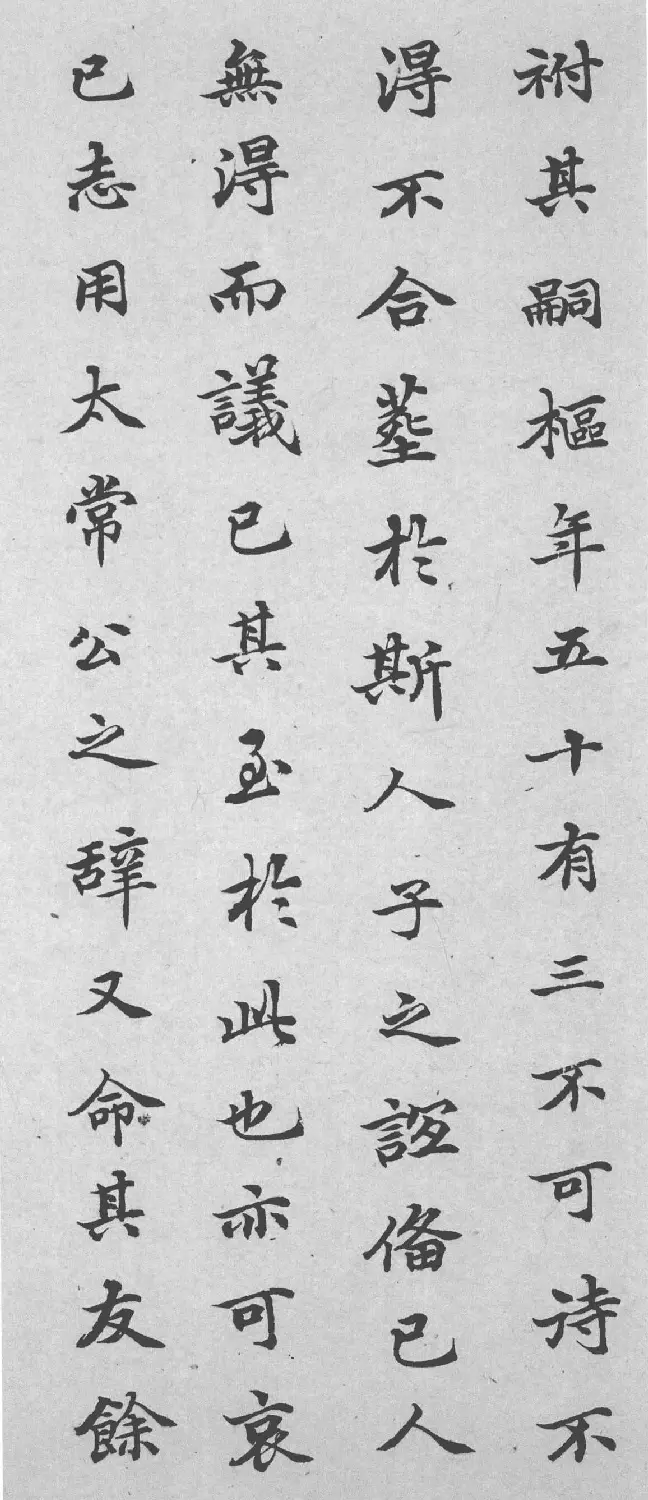 祔其嗣樞年五十有三不可诗不
淂不合葬於斯人子之誼俻已人
無淂而議已其至於此也亦可哀
已志用太常公之辤又命其友餘